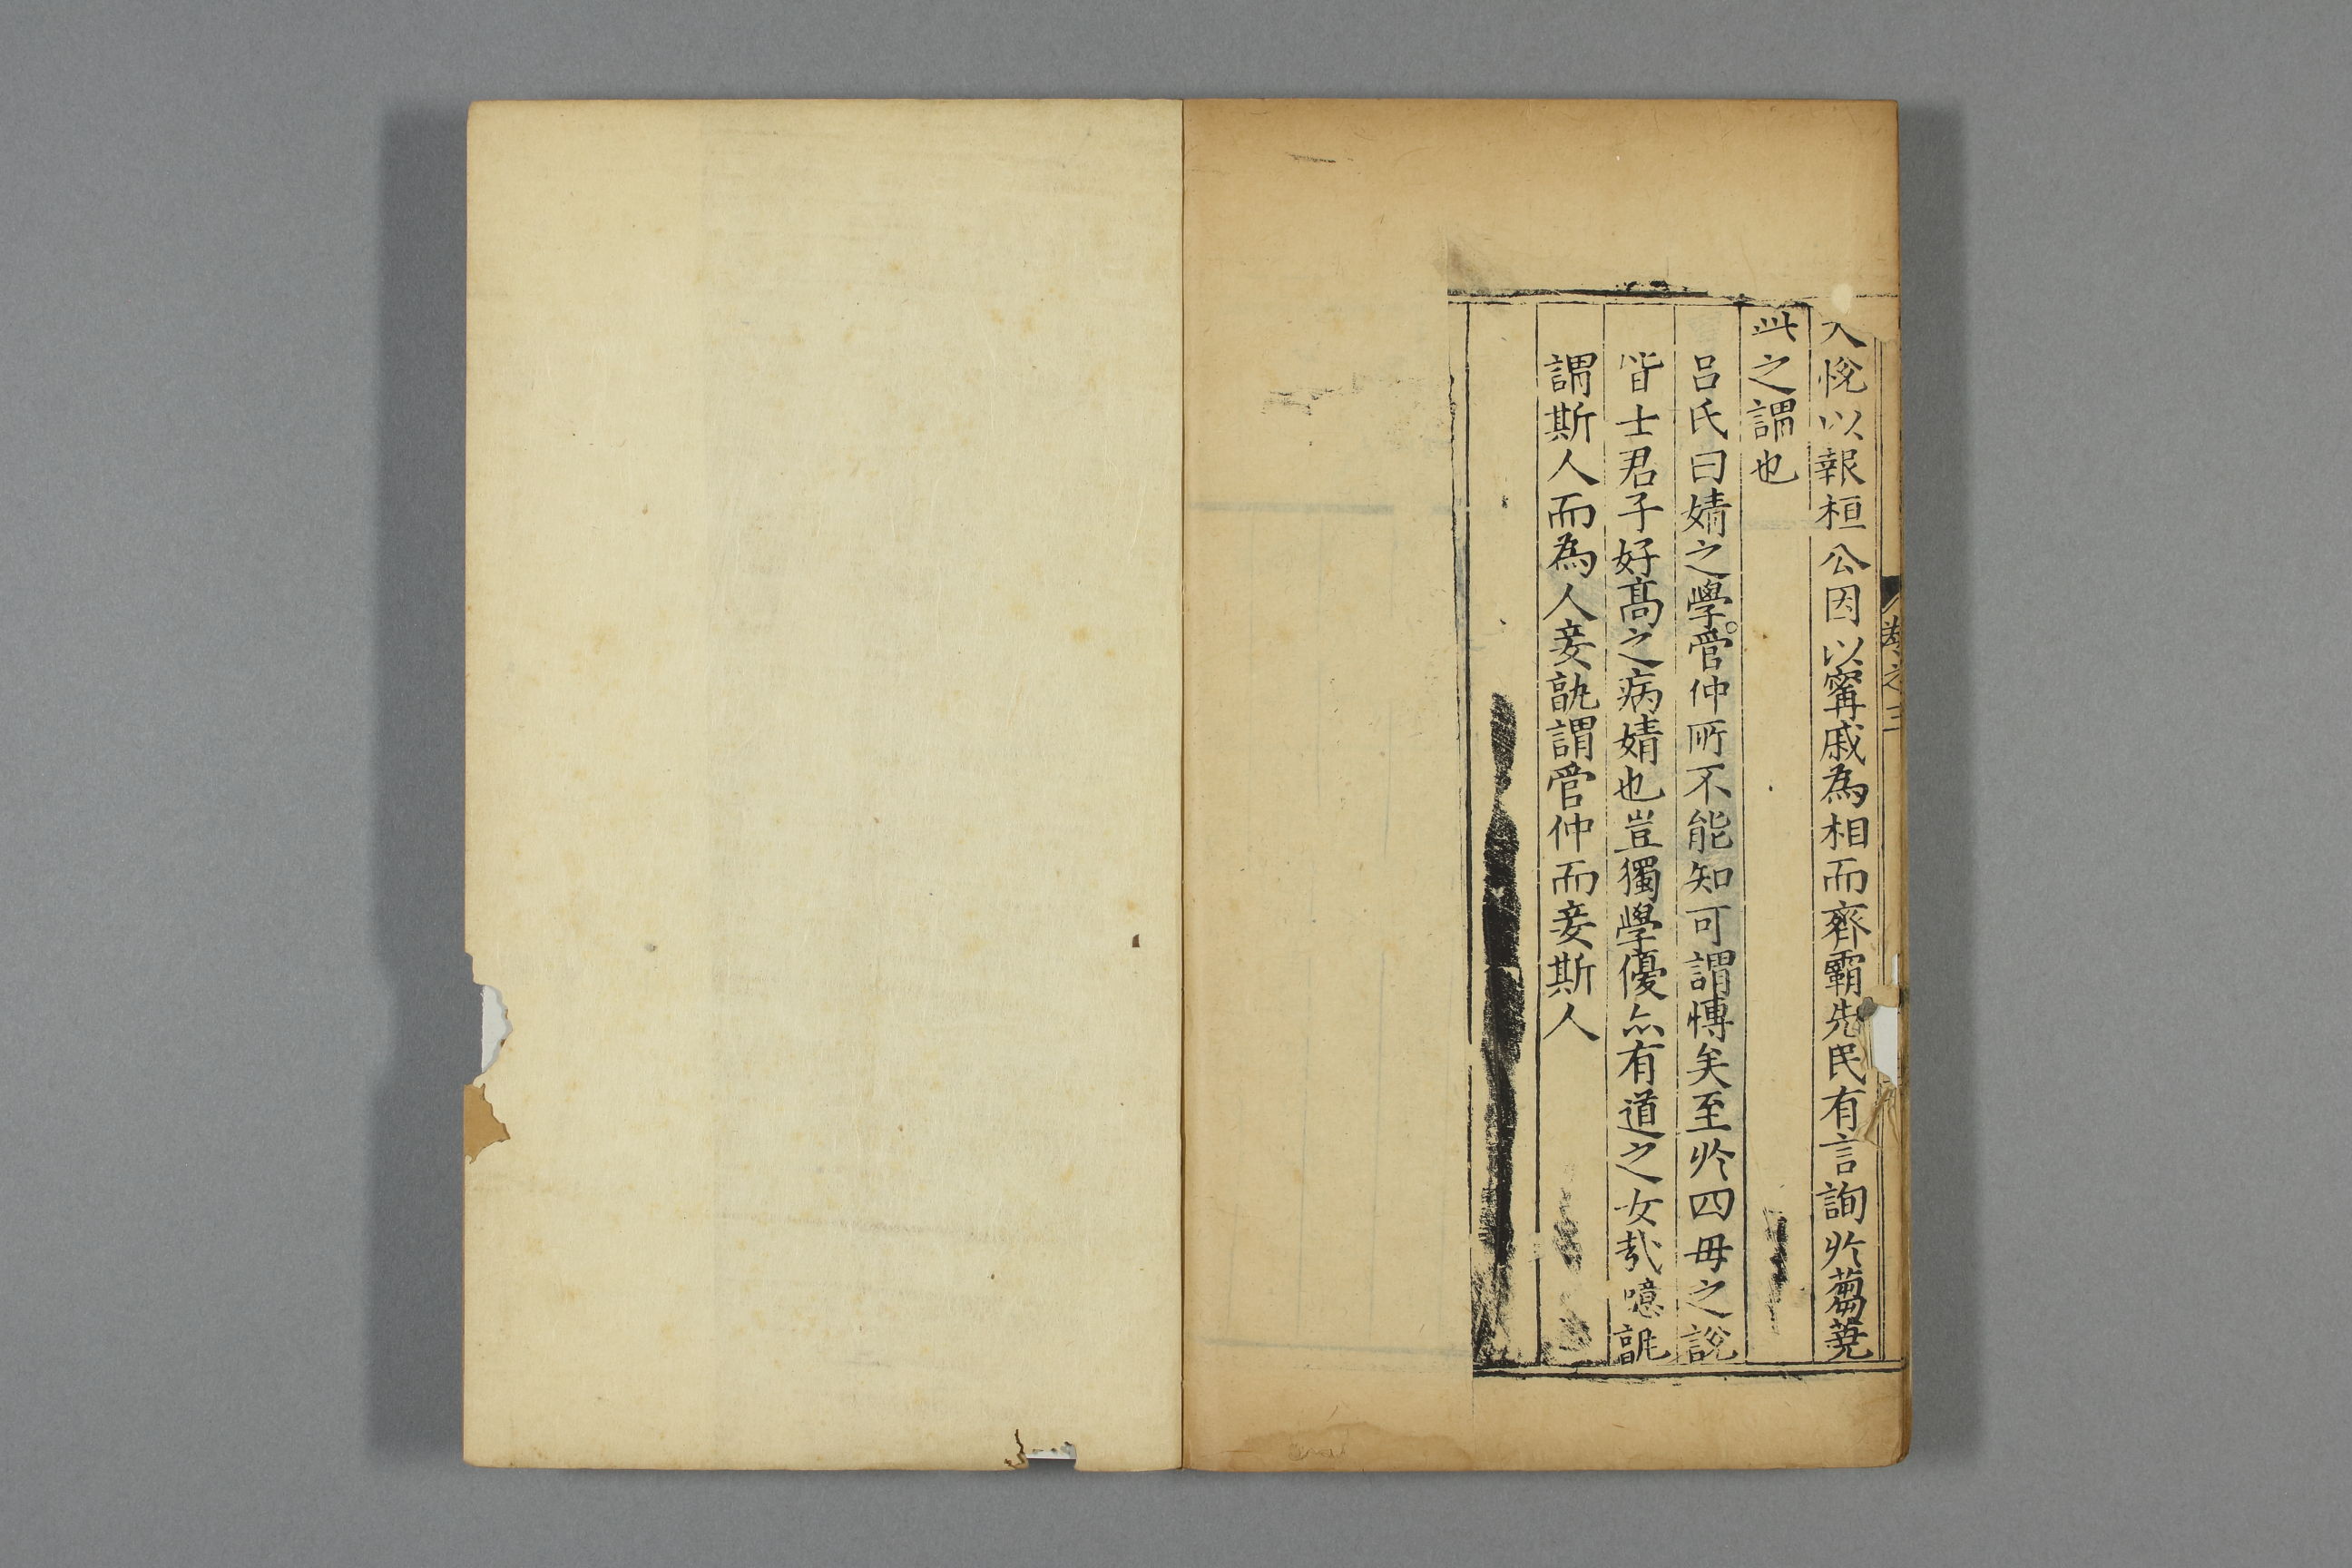 大悅以報桓公因以甯戚為相而齊霸先民有言詢於蒭蕘
此之謂也
呂氏曰婧之學管仲所不能知可謂愽矣至於四毋之說
皆士君子好高之病婧也豈獨學優亦有道之女㢤噫孰
謂斯人而為人妾孰謂管仲而妾斯人
卷之三